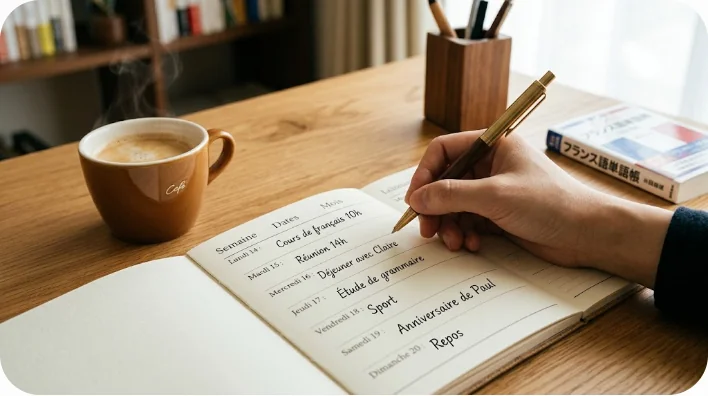 Café
Semaine Dates Mois
Lundi 14 : Cours de français 10h
Mardi 15 : Réunion 14h
Mercredi 16 : Déjeuner avec Claire
Jeudi 17 : Étude de grammaire
Vendredi 18 : Sport
Samedi 19 : Anniversaire de Paul
Dimanche 20 : Repos
フランス語単語帳
フランス語単語帳